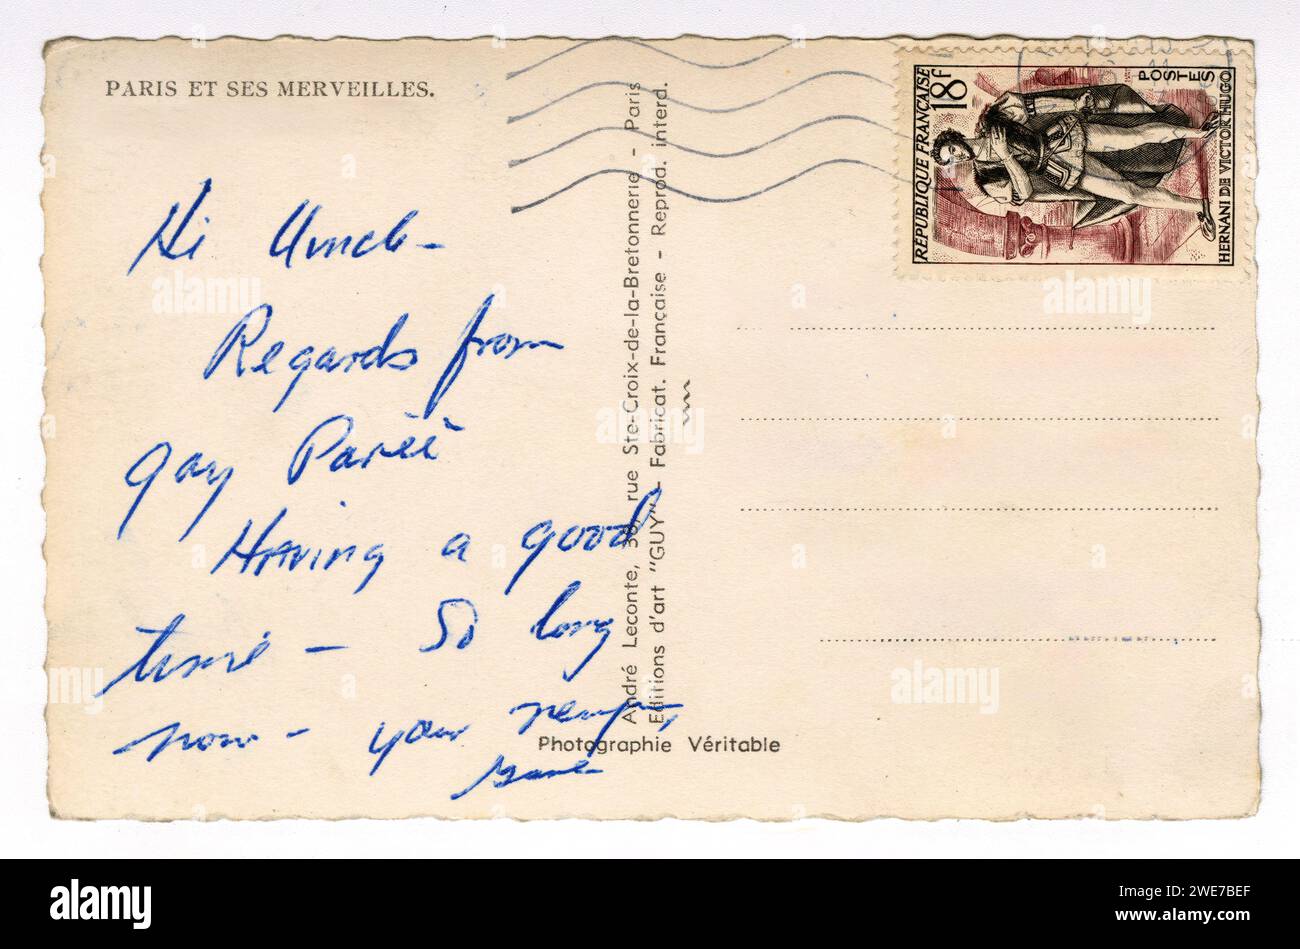 PARIS ET SES MERVEILLES.
Hi Uncle -
Regards from
gay Paréé
Having a good
time - So long
now - your
André Leconte, 38, rue Ste-Croix-de-la-Bretonnerie - Paris
Editions d'art "GUY" - Fabricat. Française - Reprod. interd.
Photographie Véritable
RÉPUBLIQUE FRANÇAISE
18f
POSTES
HERNANI DE VICTOR HUGO
alamy
Image ID: 2WE7BEF
www.alamy.com